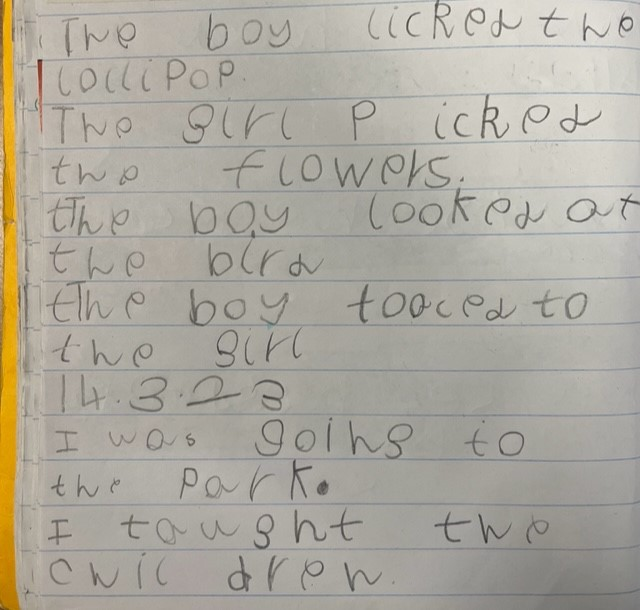 The boy licked the
lollipop.
The girl P icked
the flowers.
tThe boy looked at
the bird
tThe boy toaced to
the girl
14.3.23
I was going to
the park.
I taught the
chil dren.